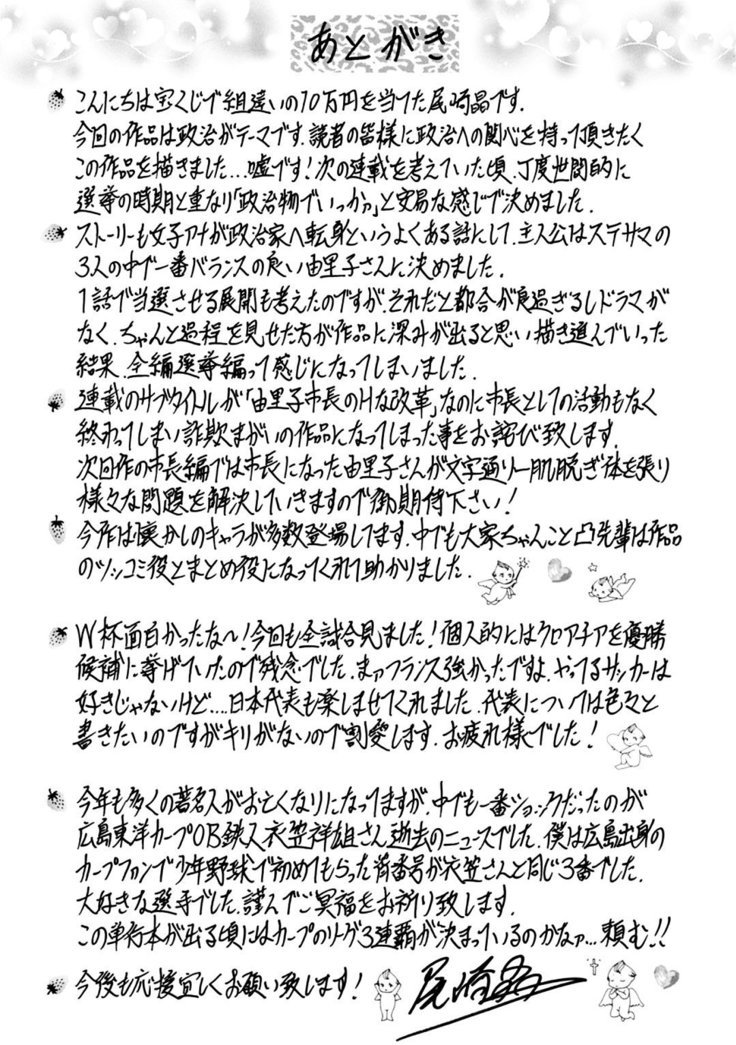 あとがき
こんにちは宝くじで組違いの10万円を当てた尾崎晶です.
今回の作品は政治がテーマです.読者の皆様に政治への関心を持って頂きたく
この作品を描きました…嘘です!次の連載を考えていた頃.丁度世間的に
選挙の時期と重なり「政治物でいっかァ」と安易な感じで決めました.
ストーリーも女子アナが政治家へ転身というよくある話にして.主人公はステサマの
3人の中で一番バランスの良い由里子さんに決めました.
1話で当選させる展開も考えたのですが.それだと都合が良過ぎるしドラマが
なく.ちゃんと過程を見せた方が作品に深みが出ると思い描き進んでいった
結果.全編選挙編って感じになってしまいました.
連載のサブタイトルが「由里子市長のHな改革」なのに市長としての活動もなく
終わってしまい詐欺まがいの作品になってしまった事をお詫び致します.
次回作の市長編では市長になった由里子さんが文字通り一肌脱ぎ体を張り
様々な問題を解決していきますので御期待下さい!
今作は懐かしのキャラが多数登場してます.中でも大家ちゃんこと凸先輩は作品
のツッコミ役とまとめ役になってくれて助かりました.
W杯面白かったな〜!今回も全試合見ました!個人的にはクロアチアを優勝
候補に挙げていたので残念でした.まァフランス強かったですよ.やってるサッカーは
好きじゃないけど….日本代表も楽しませてくれました.代表については色々と
書きたいのですがキリがないので割愛します.お疲れ様でした!
今年も多くの著名人がお亡くなりになってますが.中でも一番ショックだったのが
広島東洋カープOB鉄人衣笠祥雄さん逝去のニュースでした.僕は広島出身の
カープファンで少年野球で初めてもらった背番号が衣笠さんと同じ3番でした.
大好きな選手でした.謹んでご冥福をお祈り致します.
この単行本が出る頃にはカープのリーグ3連覇が決まっているのかなァ…頼む!!
今後も応援宜しくお願い致します!
尾崎晶